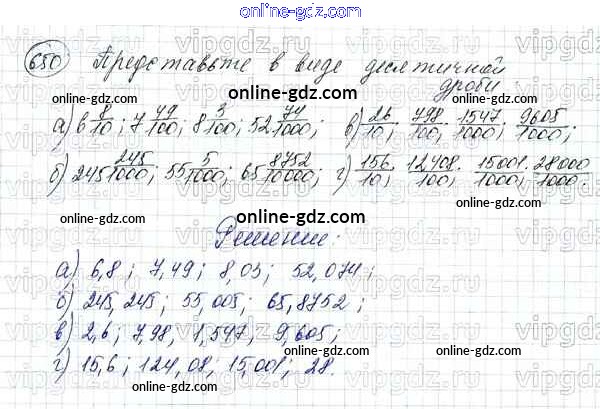 online-gdz.com
650 Представьте в виде десятичной
дроби:
online-gdz.com online-gdz.com
а) 6 8/10; 7 49/100; 8 3/100; 52 74/1000; в) 26/10; 798/100; 1547/1000; 9605/1000;
online-gdz.com
б) 245 245/1000; 55 5/1000; 65 8752/10000; г) 156/10; 12408/100; 15001/1000; 28000/1000.
online-gdz.com online-gdz.com
online-gdz.com
Решение:
а) 6,8; 7,49; 8,03; 52,074;
online-gdz.com
б) 245,245; 55,005; 65,8752;
в) 2,6; 7,98, 1,547; 9,605;
online-gdz.com
г) 15,6; 124,08; 15,001; 28.
online-gdz.com
online-gdz.com